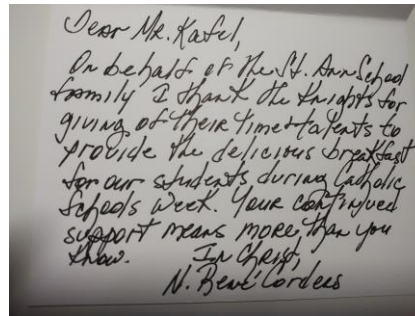 Dear Mr. Kafel,
On behalf of the St. Ann School
family I thank the Knights for
giving of their time + talents to
provide the delicious breakfast
for our students during Catholic
Schools Week. Your continued
support means more than you
know. In Christ,
N. Corders